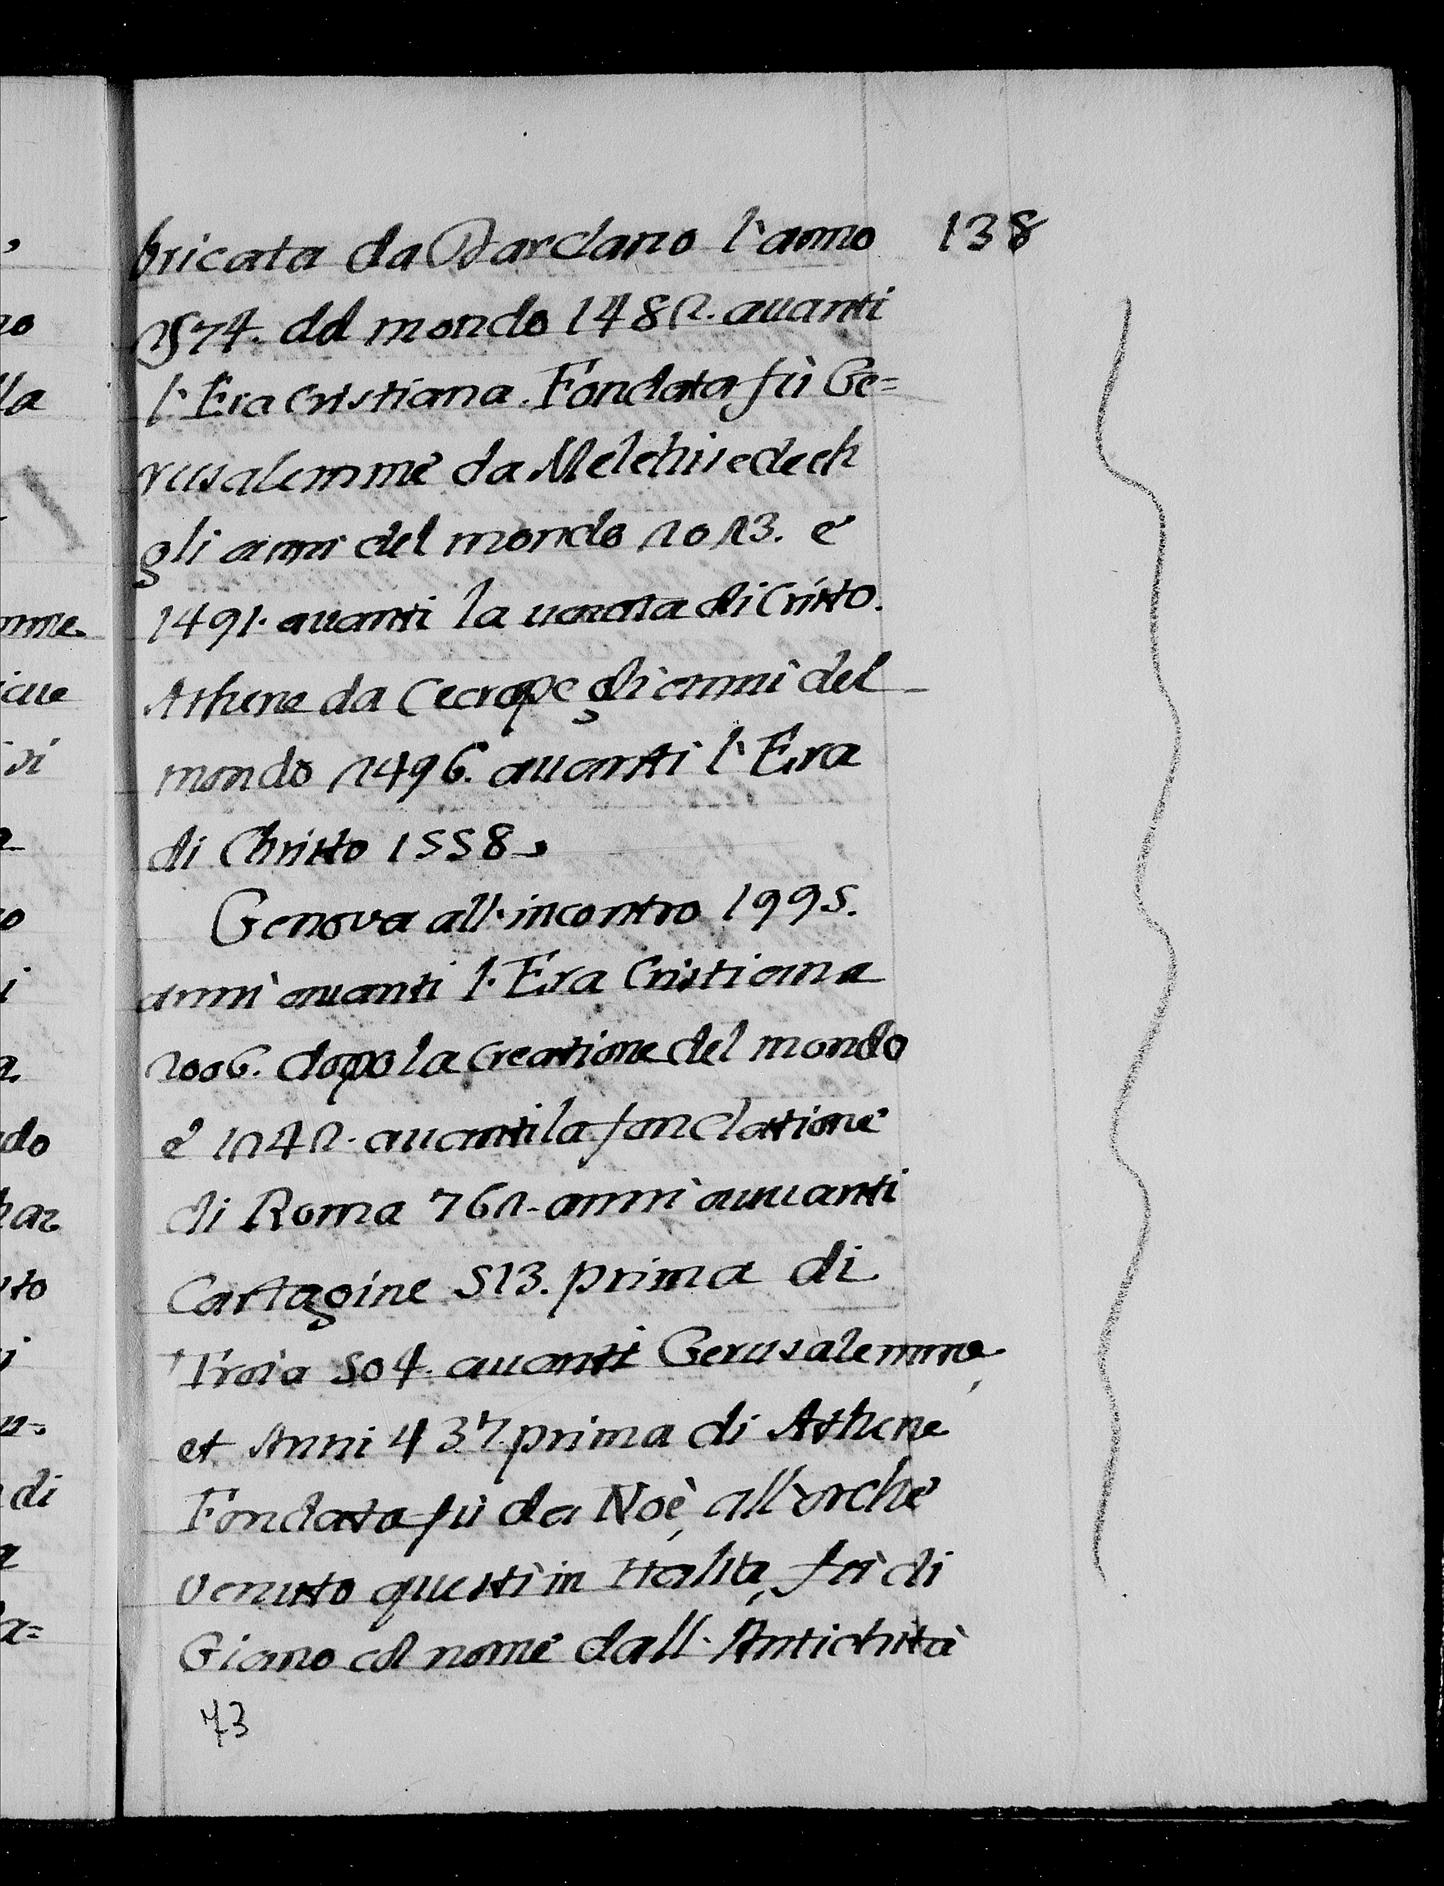 138
bricata da Dardano l'anno
2574. del mondo 1482. auanti
l'Era Cristiana. Fondata fù Ge=
rusalemme da Melchisedech
gli anni del mondo 2023. e
1491. auanti la uenuta di Cristo.
Athene da Cecrope gli anni del
mondo 2496. auanti l'Era
di Christo 1558.
Genova all'incontro 1995.
anni auanti l'Era Cristiana
2006. dopo la Creatione del mondo
e 1242. auanti la fondatione
di Roma 762. anni auuanti
Cartagine 513. prima di
Troia 504. auanti Gerusalemme,
et Anni 437. prima di Athene
Fondata fù da Noè, all'orche
venuto questi in Italia, fù di
Giano col nome dall'Antichità
73